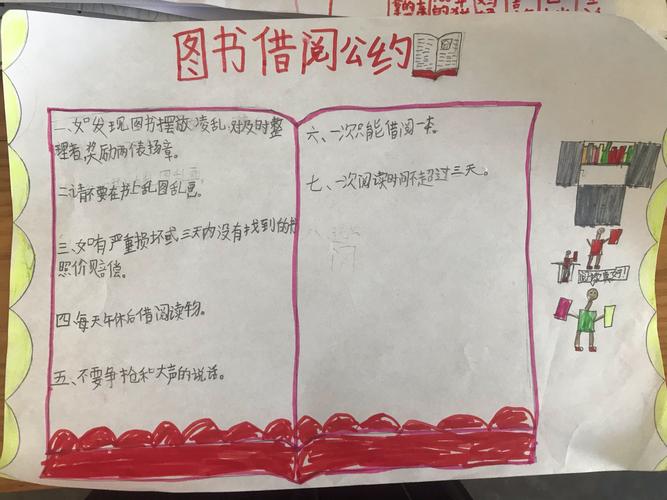 图书借阅公约
一、如发现图书摆放凌乱,对及时整
理者,奖励两张扬章。
二、请不要在书上乱图乱画。
三、如有严重损坏或三天内没有找到的
照价赔偿。
四、每天午休后借阅读物。
五、不要争抢和大声的说话。
六、一次只能借阅一本。
七、一次阅读时间不超过三天。
阅读真好!